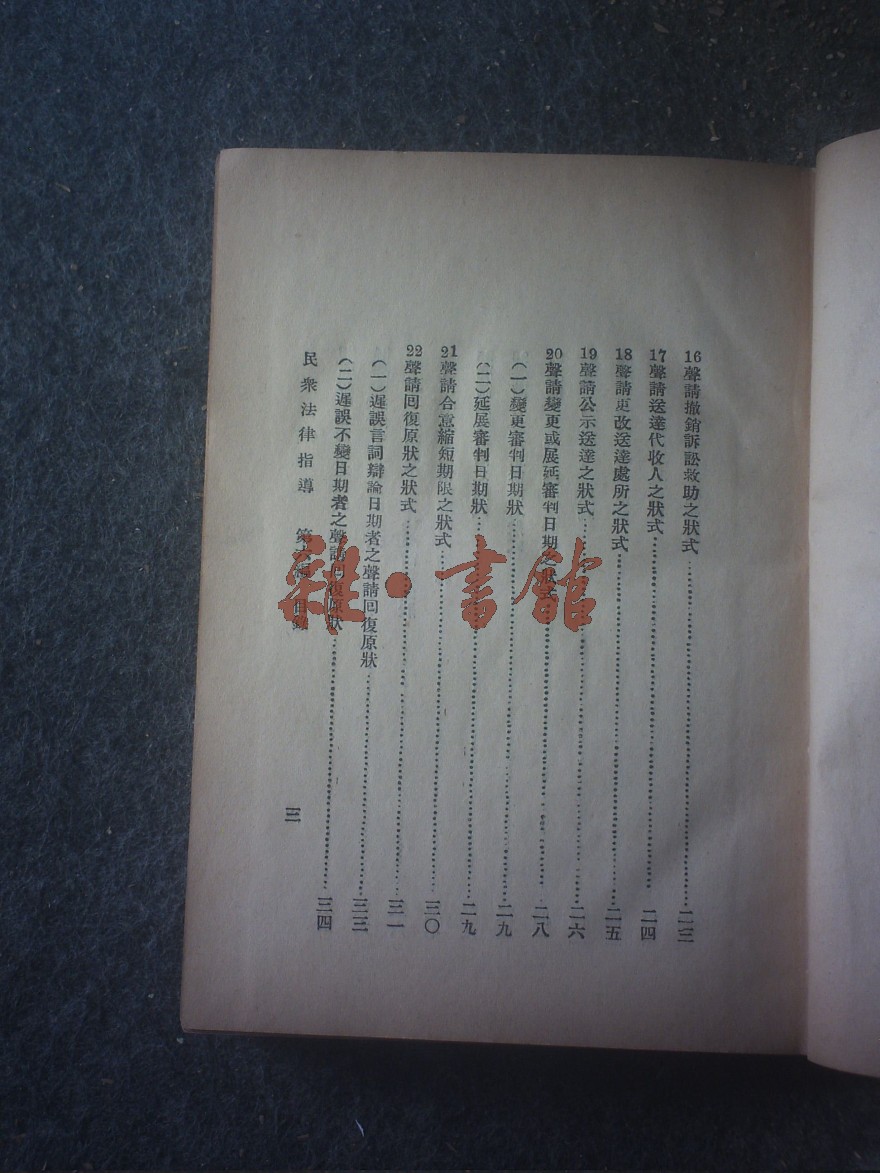 16聲請撤銷訴訟救助之狀式……二三
17聲請送達代收人之狀式……二四
18聲請更改送達處所之狀式……二五
19聲請公示送達之狀式……二六
20聲請變更或展延審判日期之狀式……二八
(一)變更審判日期狀……二九
(二)延展審判日期狀……二九
21聲請合意縮短期限之狀式……三〇
22聲請回復原狀之狀式……三一
(一)遲誤言詞辯論日期者之聲請回復原狀……三三
(二)遲誤不變日期者之聲請回復原狀……三四
民衆法律指導 第六編 目錄 三
雜·書館